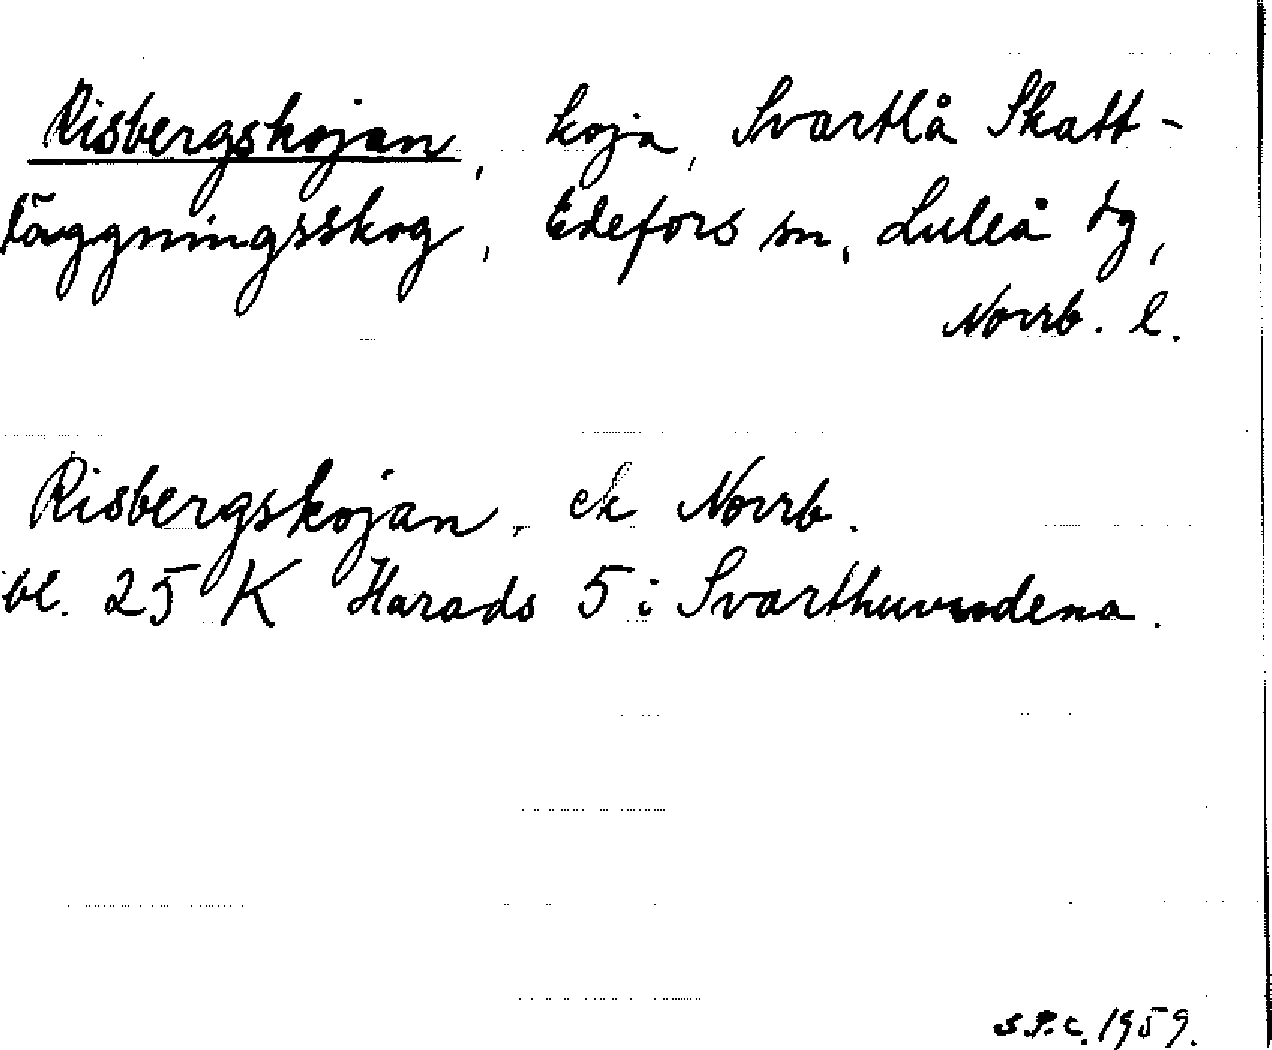 Risbergskojan, koja, Svartlå Skatt-
läggningsskog, Edefors sn, Luleå tg,
Norrb. l.
Risbergskojan. ek Norrb.
bl. 25 K Harads 5 i Svarthuvudena.
S.P.C. 1959.